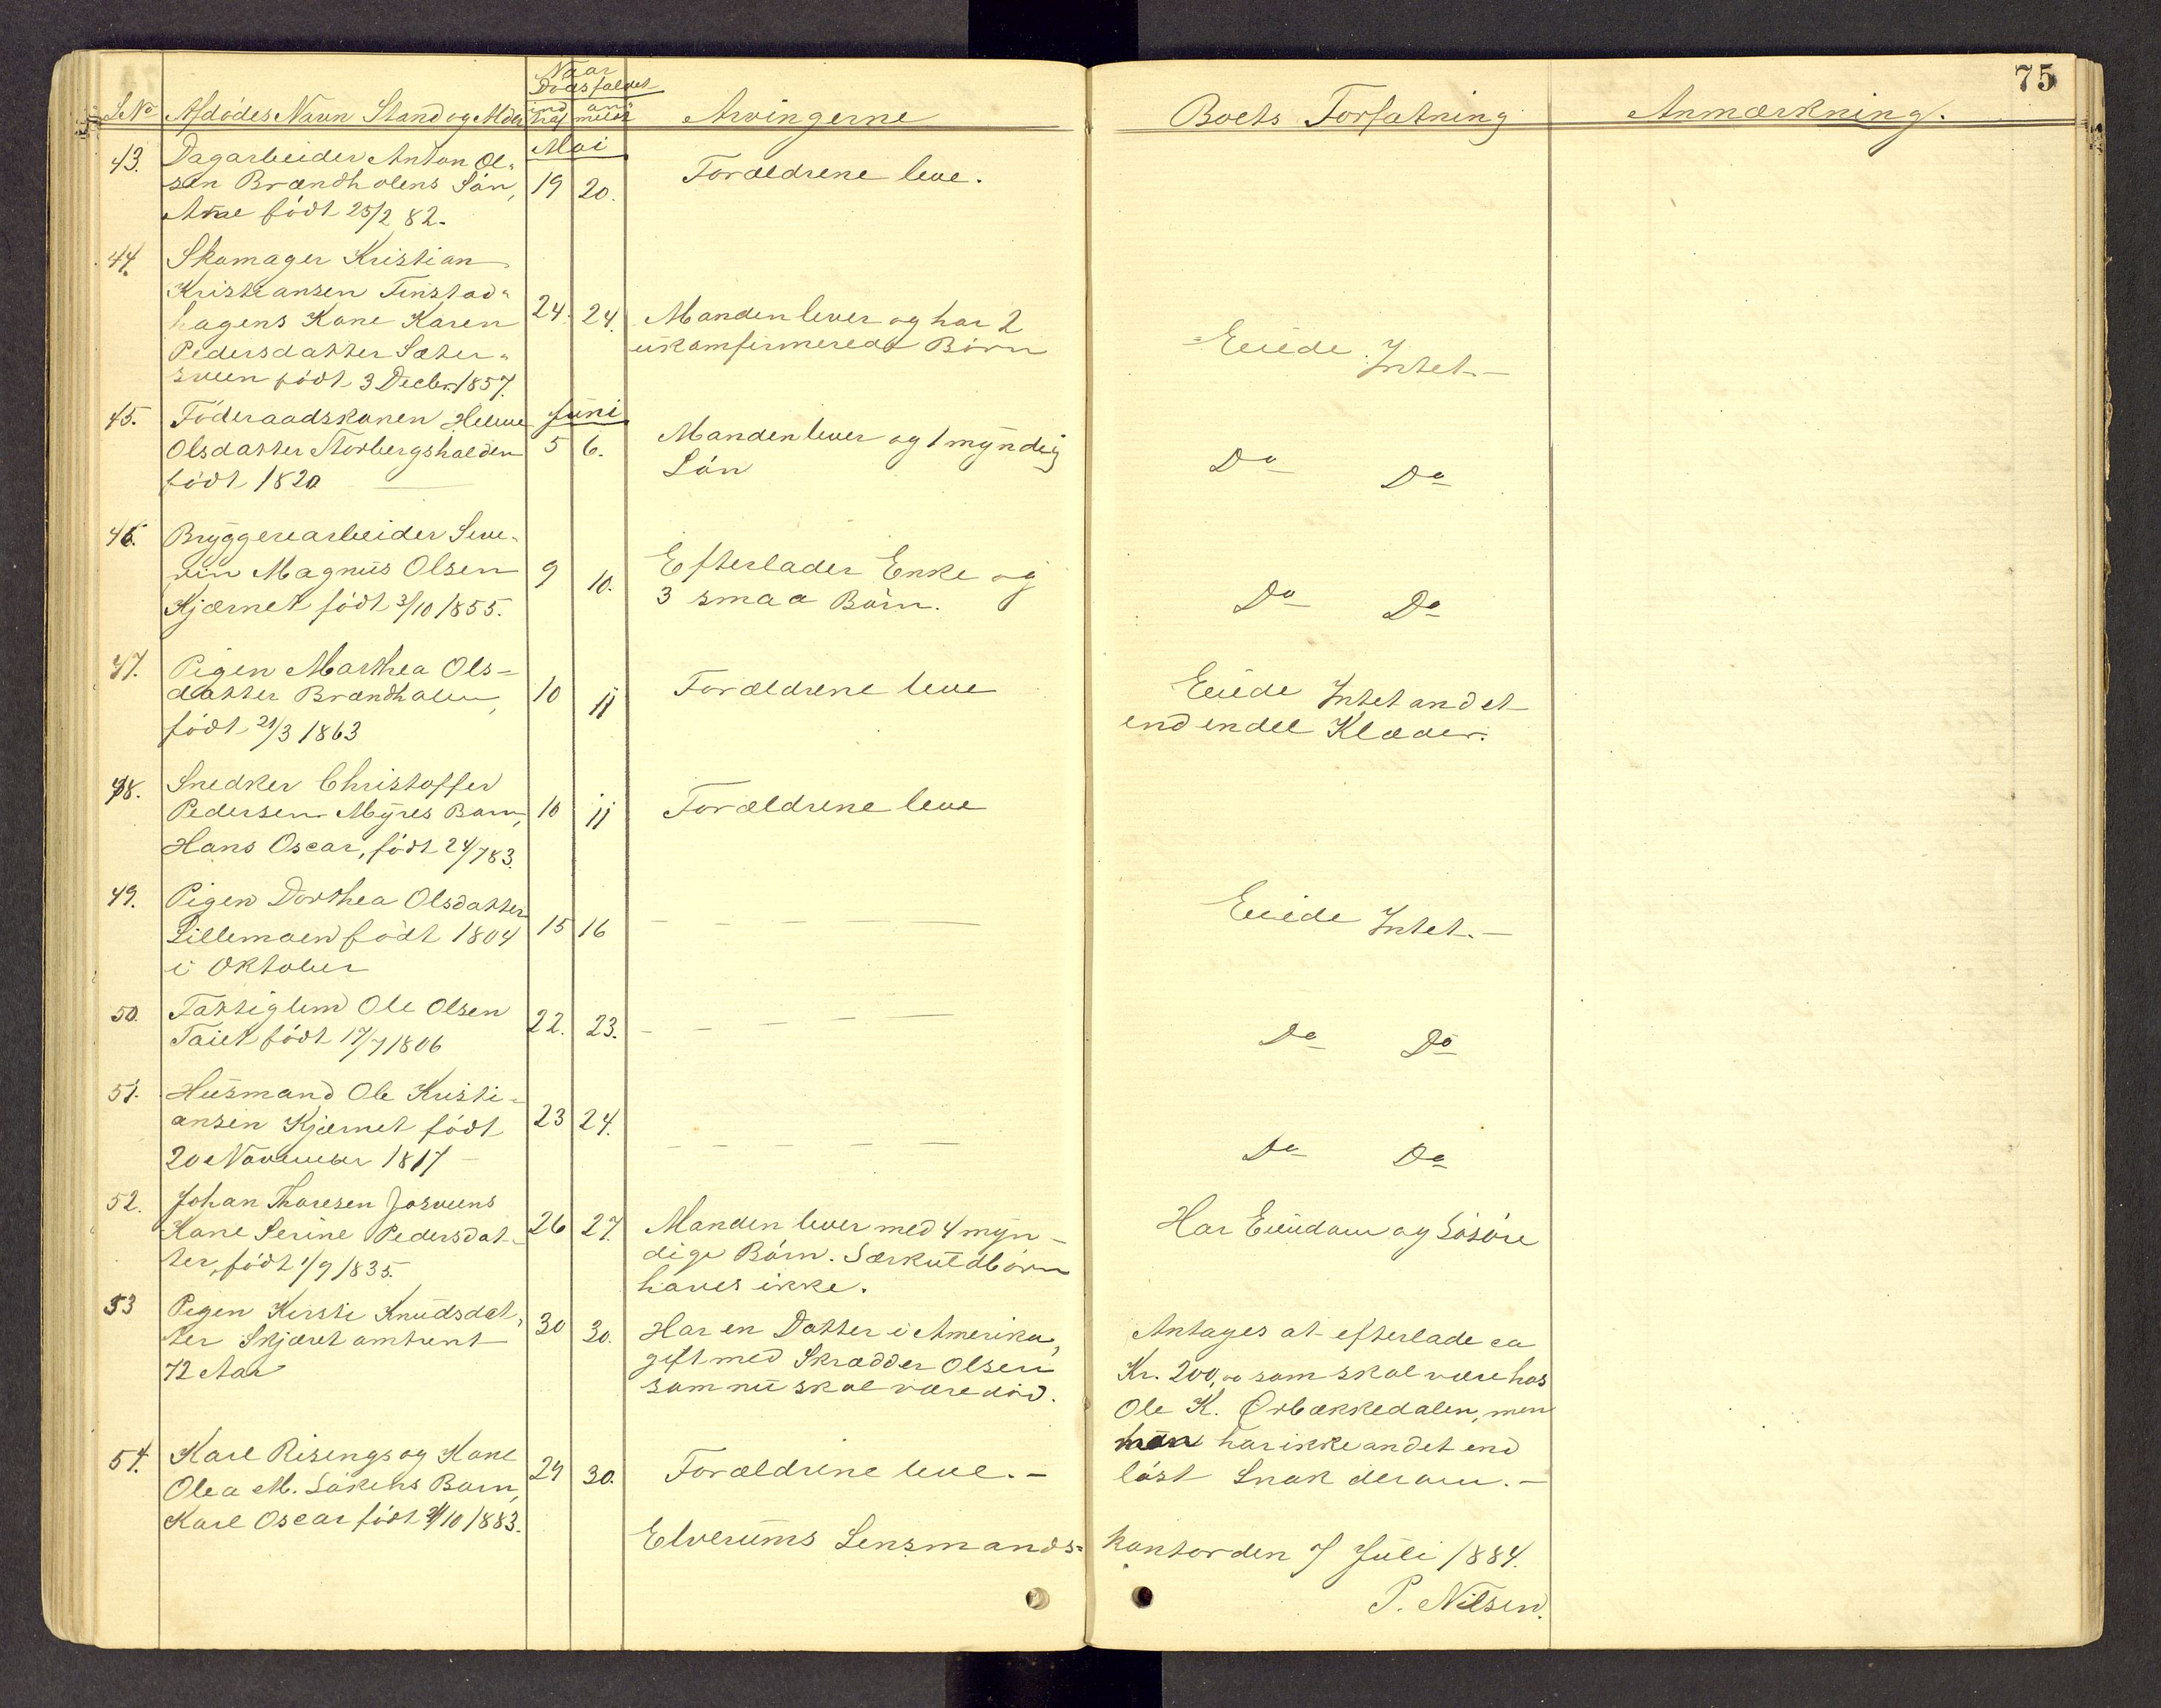 75
Naar
Dødsfaldet
LNo Afdødes Navn Stand og Alder ind traf an meldt Arvingerne Boets Forfatning Anmærkning.
Mai
43. Dagarbeider Anton Ol-
sen Brændholens Søn, 19 20. Forældrene leve.
Arne født 25/2 82.
44. Skomager Kristian
Kristiansen Finstad-
hagens Kone Karen 24. 24. Manden lever og har 2
Pedersdatter Sæter- ukomfirmerede Børn Eiede Intet.-
sveen født 3 Decbr. 1857.
Juni
45. Føderaadskonen Helene
Olsdatter Storbergshalden 5 6. Manden lever og 1 myndig
født 1820 Søn Do Do
46. Bryggerearbeider Seve-
rin Magnus Olsen 9 10. Efterlader Enke og
Kjærnet født 3/10 1855. 3 smaa Børn. Do Do
47. Pigen Marthea Ols-
datter Brændholen, 10 11 Forældrene leve Eiede Intet andet
født 21/3 1863 end endel Klæder.
48. Snedker Christoffer
Pedersen Myres Barn, 10 11 Forældrene leve
Hans Oscar, født 24/7 83.
49. Pigen Dorthea Olsdatter
Lillemoen født 1804 15 16 — — — — — Eiede Intet.-
i Oktober
50. Fattiglem Ole Olsen
Taiet født 17/7 1806 22. 23. — — — — — Do Do
51. Husmand Ole Kristi-
ansen Kjærnet født 23 24. — — — — — Do Do
20 November 1817 -
52. Johan Thoresen Josveens
Kone Serine Pedersdat- 26 27. Manden lever med 4 myn- Har Eiendom og Løsøre
ter, født 1/9 1835. dige Børn. Særkuldbørn
haves ikke.
53 Pigen Kirsti Knudsdat-
ter Skjæret omtrent 30 30. Har en Datter i Amerika, Antages at efterlade ca
72 Aar gift med Skrædder Olsen Kr. 200,00 som skal være hos
som nu skal være død. Ole K. Ørbækkedalen, men
man har ikke andet end
løst Snak derom.-
54. Karl Risengs og Kone
Olea M. Løkens Barn, 29 30. Forældrene leve.-
Karl Oscar født 21/10 1883.
Elverums Lensmands-kontor den 7 Juli 1884.
P. Nilsen.